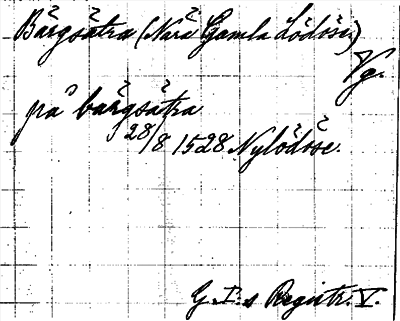 Bärgsätra (Nära Gamla Lödöse)
Vg.
på bärgsätra
28/8 1528 Nylödöse.
G. I:s Registr. V.